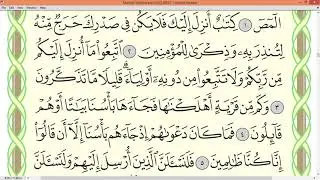 الٓمٓصٓ ١ كِتَٰبٌ أُنزِلَ إِلَيْكَ فَلَا يَكُن فِي صَدْرِكَ حَرَجٌ مِّنْهُ
لِتُنذِرَ بِهِۦ وَذِكْرَىٰ لِلْمُؤْمِنِينَ ٢ ٱتَّبِعُوا۟ مَآ أُنزِلَ إِلَيْكُم
مِّن رَّبِّكُمْ وَلَا تَتَّبِعُوا۟ مِن دُونِهِۦٓ أَوْلِيَآءَ قَلِيلًا مَّا تَذَكَّرُونَ
٣ وَكَم مِّن قَرْيَةٍ أَهْلَكْنَٰهَا فَجَآءَهَا بَأْسُنَا بَيَٰتًا أَوْ هُمْ
قَآئِلُونَ ٤ فَمَا كَانَ دَعْوَىٰهُمْ إِذْ جَآءَهُم بَأْسُنَآ إِلَّآ أَن قَالُوٓا۟
إِنَّا كُنَّا ظَٰلِمِينَ ٥ فَلَنَسْـَٔلَنَّ ٱلَّذِينَ أُرْسِلَ إِلَيْهِمْ وَلَنَسْـَٔلَنَّ